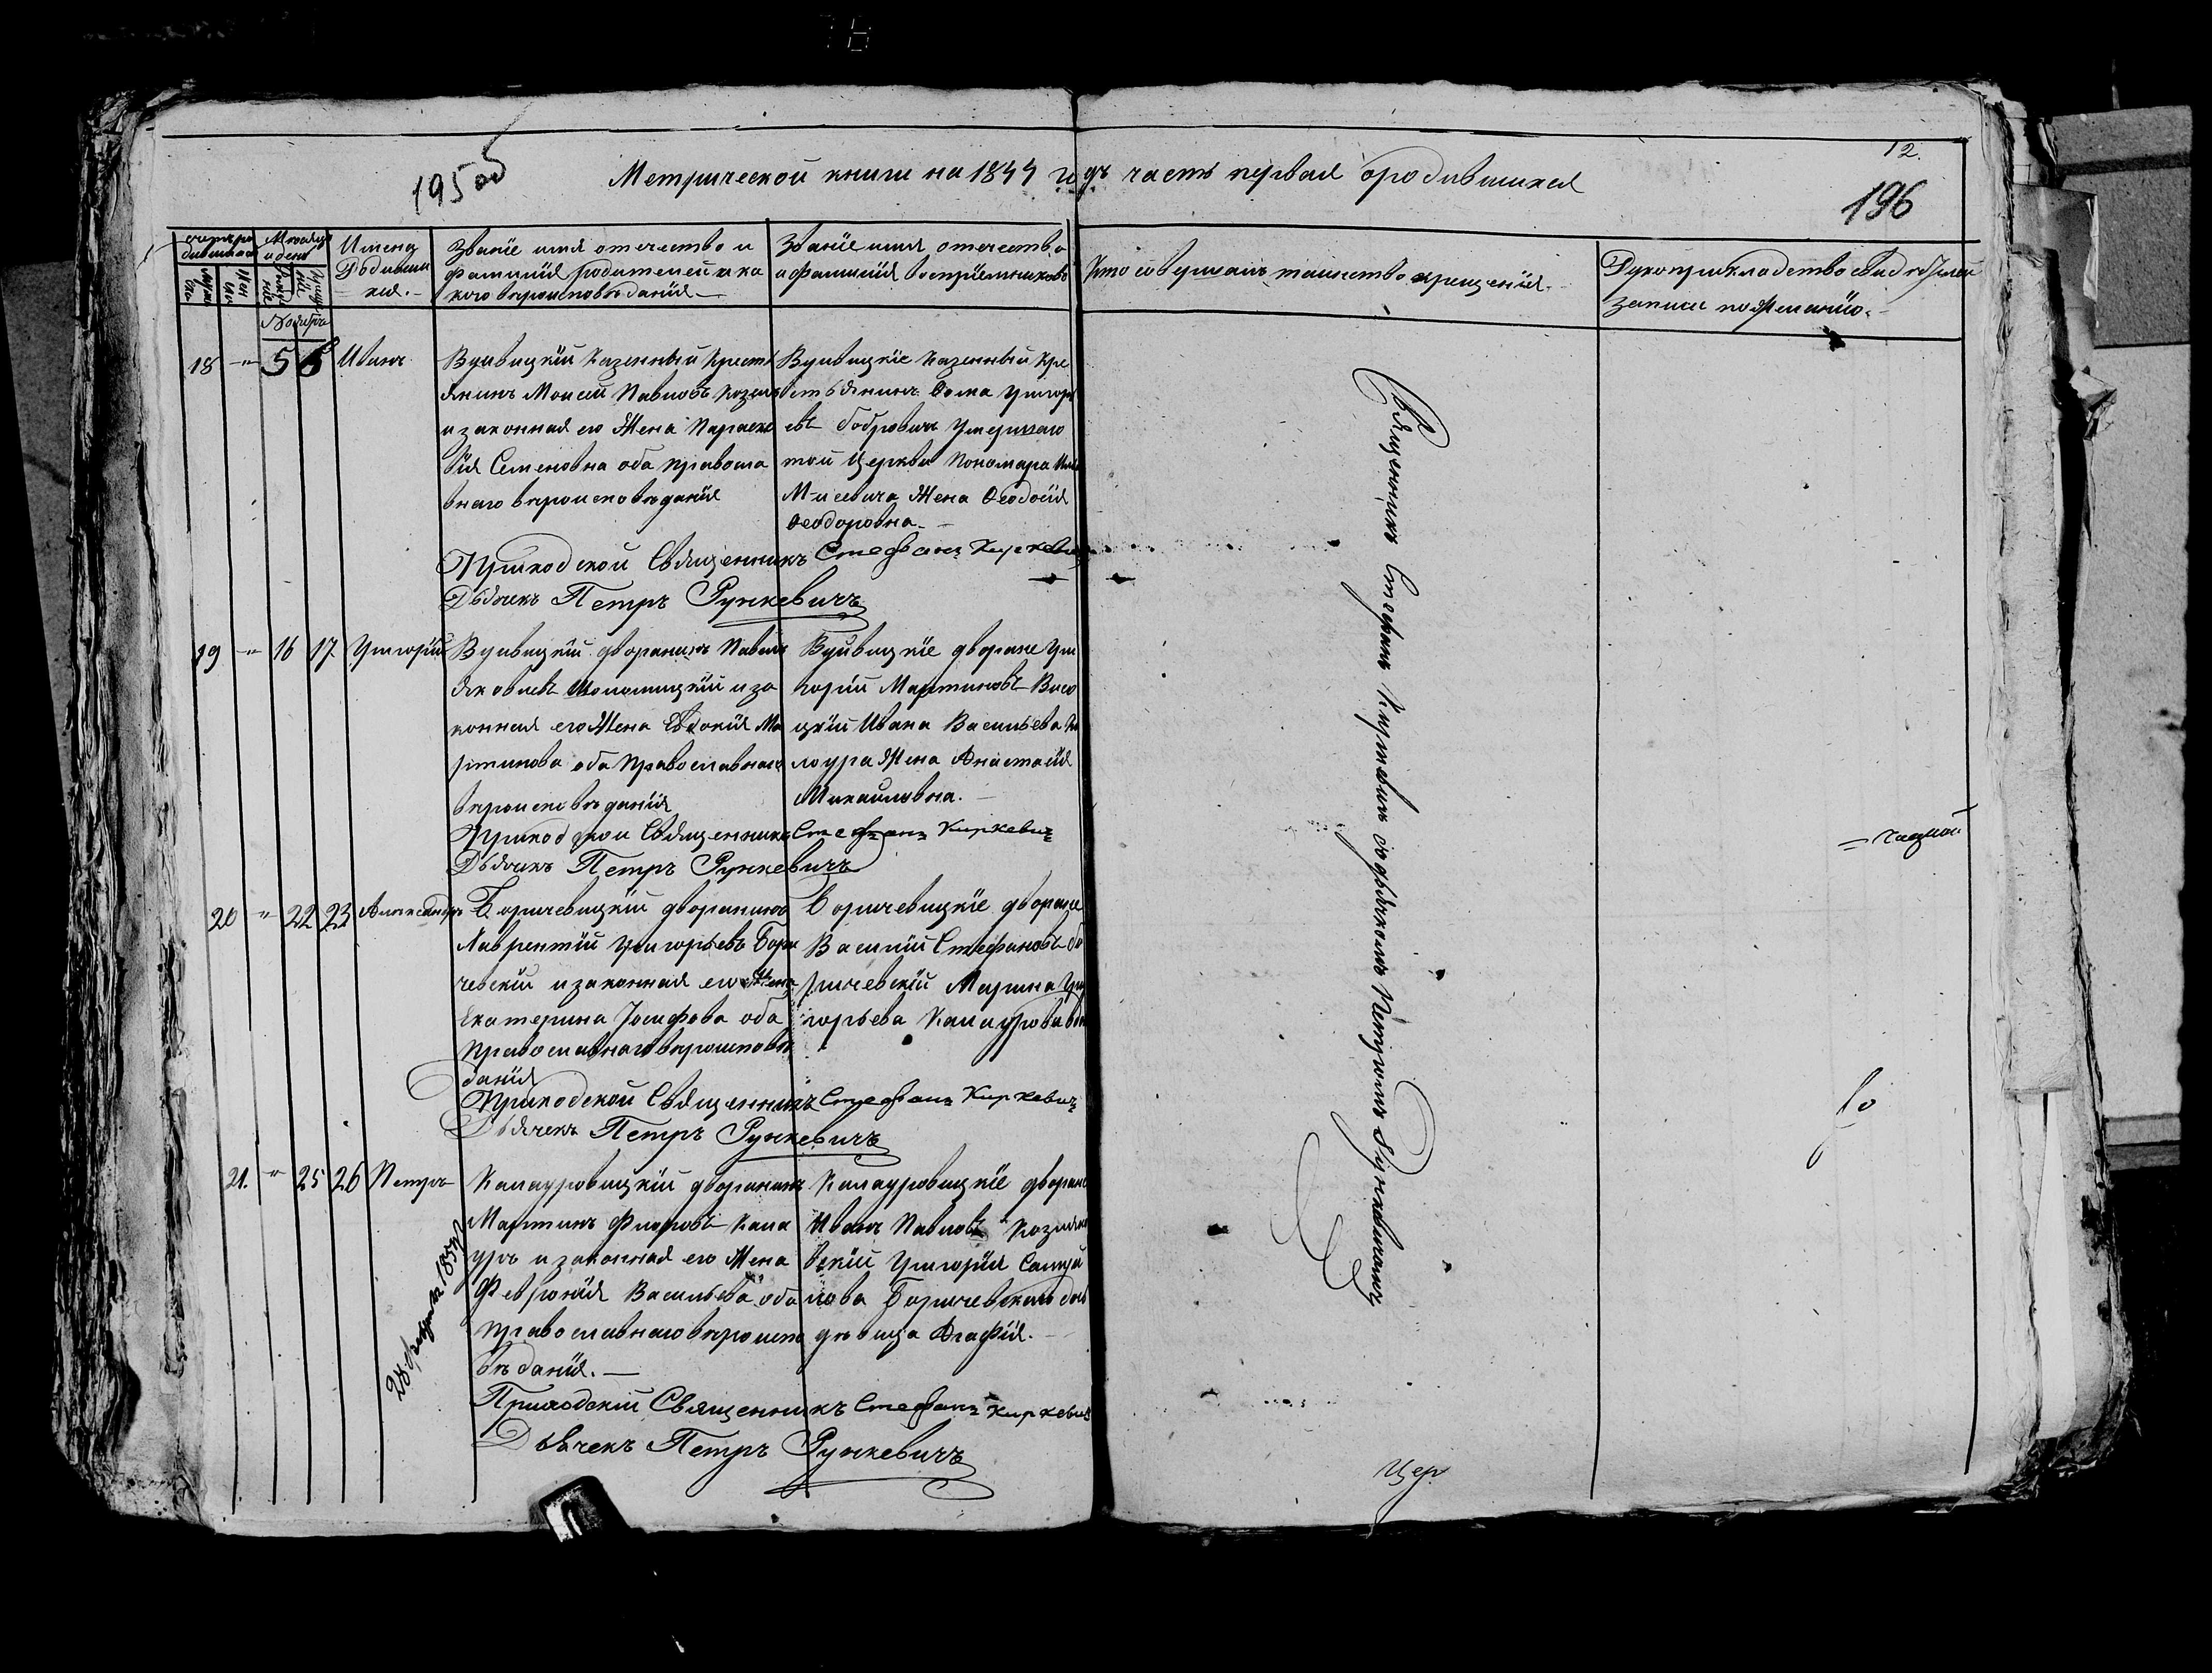 195 об
Метрической книги на 1844 годъ часть первая о родившихся
12.
196
Имена
Родивши
хся.
Званіе имя отечество и
фамилія родителей и ка
кого вѣроисповѣданія
Званіе имя отечество
и фамилія воспріемниковъ
Кто совершалъ таинство крещенія.
Рукоприкладство свидѣтелей
записи по желанію.
Ноябрь
18 " 5 6 Иванъ
Вуйвицкій казенный крест
янинъ Моисей Павловъ
и законная его жена Параске
вія Семеновна оба правосла
внаго вѣроисповѣданія
Вуйвицкіе казенный кре
стьянинъ Ѳома Григорь
евъ Бобровичъ умершаго
той церкви пономара
жена Ѳеодосія
Ѳеодоровна.
Приходской Священникъ Стефанъ Киркевичъ
Дьячекъ Петръ Рункевичъ
19 " 16 17 Григорій
Вуйвицкій дворанинъ Павелъ
Яковлевъ и за
конная его жена Евдокія Ма
ртинова оба православнаго
вѣроисповѣданія
Вуйвицкіе дворане Гри
горій Мартиновъ Высо
цкій Ивана Васильева
жена Анастасія
Михайловна.
Приходской Священникъ Стефанъ Киркевичъ
Дьячикъ Петръ Рункевичъ
20 " 22 23 Александръ
Боричевицкій дворанинъ
Лаврентій Григорьевъ Бори
чевскій и законная его жена
Екатерина Іосифова оба
православнаго вѣроисповѣ
данія
Боричевицкіе дворане
Василій Стефановъ Бо
ричевскій Марина Гри
горьева
Приходской Священникъ Стефанъ Киркевичъ
Дьячекъ Петръ Рункевичъ
21. " 25 26 Петръ
Калауровицкій дворанинъ
Мартинъ Флоровъ Кала
уръ и законная его жена
Февронія Васильева оба
православнаго вѣроиспо
вѣданія.
Калауровицкіе дворане
Иванъ Павловъ
вскій Григорія Самуй
лова Боричевскаго дочь
дѣвица Агафія.
Приходскій Священникъ Стефанъ Киркевичъ
Дьячекъ Петръ Рункевичъ
Священникъ Стефанъ Киркевичъ съ дьячкомъ Петромъ Рункевичемъ
Цер